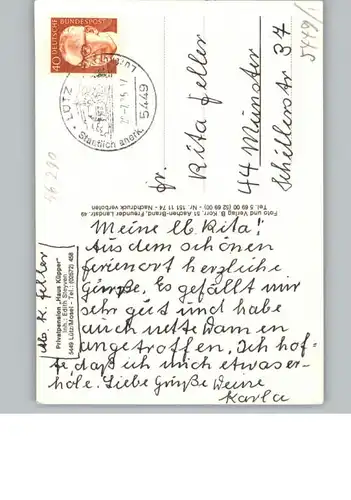 5449/1
DEUTSCHE BUNDESPOST
40
LÜTZ
5449
Staatlich anerk.
Fr.
Rita Feller
44 Münster
Schillerstr 37
Foto und Verlag B. Korr, 51 Aachen-Brand, Freunder Landstr. 49
Tel. 5 69 00 (52 69 00) - Nr. 151 11 74 - Nachdruck verboten
Privatpension „Haus Küpper"
5449 Lütz/Mosel - Tel.: (02672) 458
Meine lb. Rita!
Aus dem schönen
Ferienort herzliche
Grüße. Es gefällt mir
sehr gut und habe
auch nette Damen
angetroffen. Ich hof-
fe, daß ich mich etwas er-
hole. Liebe Grüße Deine
Karla